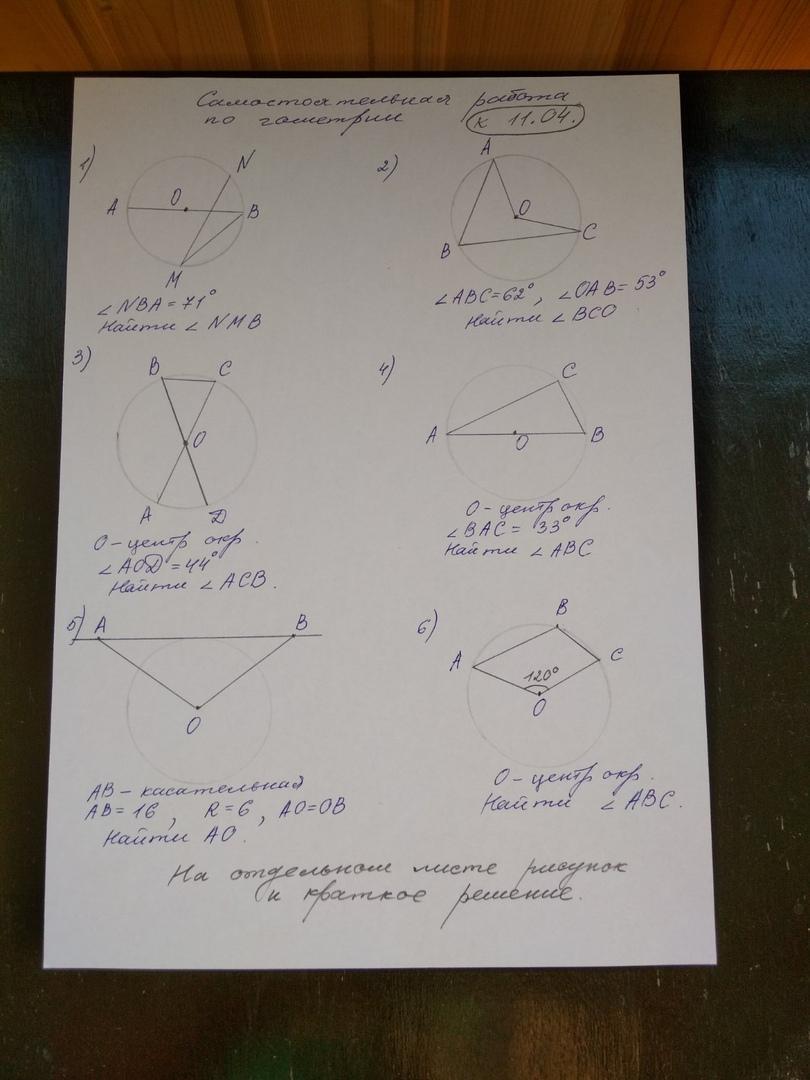 Самостоятельная работа
по геометрии
к 11.04.
1)
N
O
A
B
M
∠NBA = 71°
Найти ∠NMB
2)
A
O
C
B
∠ABC = 62°, ∠OAB = 53°
Найти ∠BCO
3)
B
C
O
A
D
O - центр окр.
∠AOD = 44°
Найти ∠ACB.
4)
C
A
O
B
O - центр окр.
∠BAC = 33°
Найти ∠ABC
5)
A
B
O
AB - касательная
AB = 16, R = 6, AO = OB
Найти AO.
6)
B
A
C
120°
O
O - центр окр.
Найти ∠ABC.
На отдельном листе рисунок
и краткое решение.